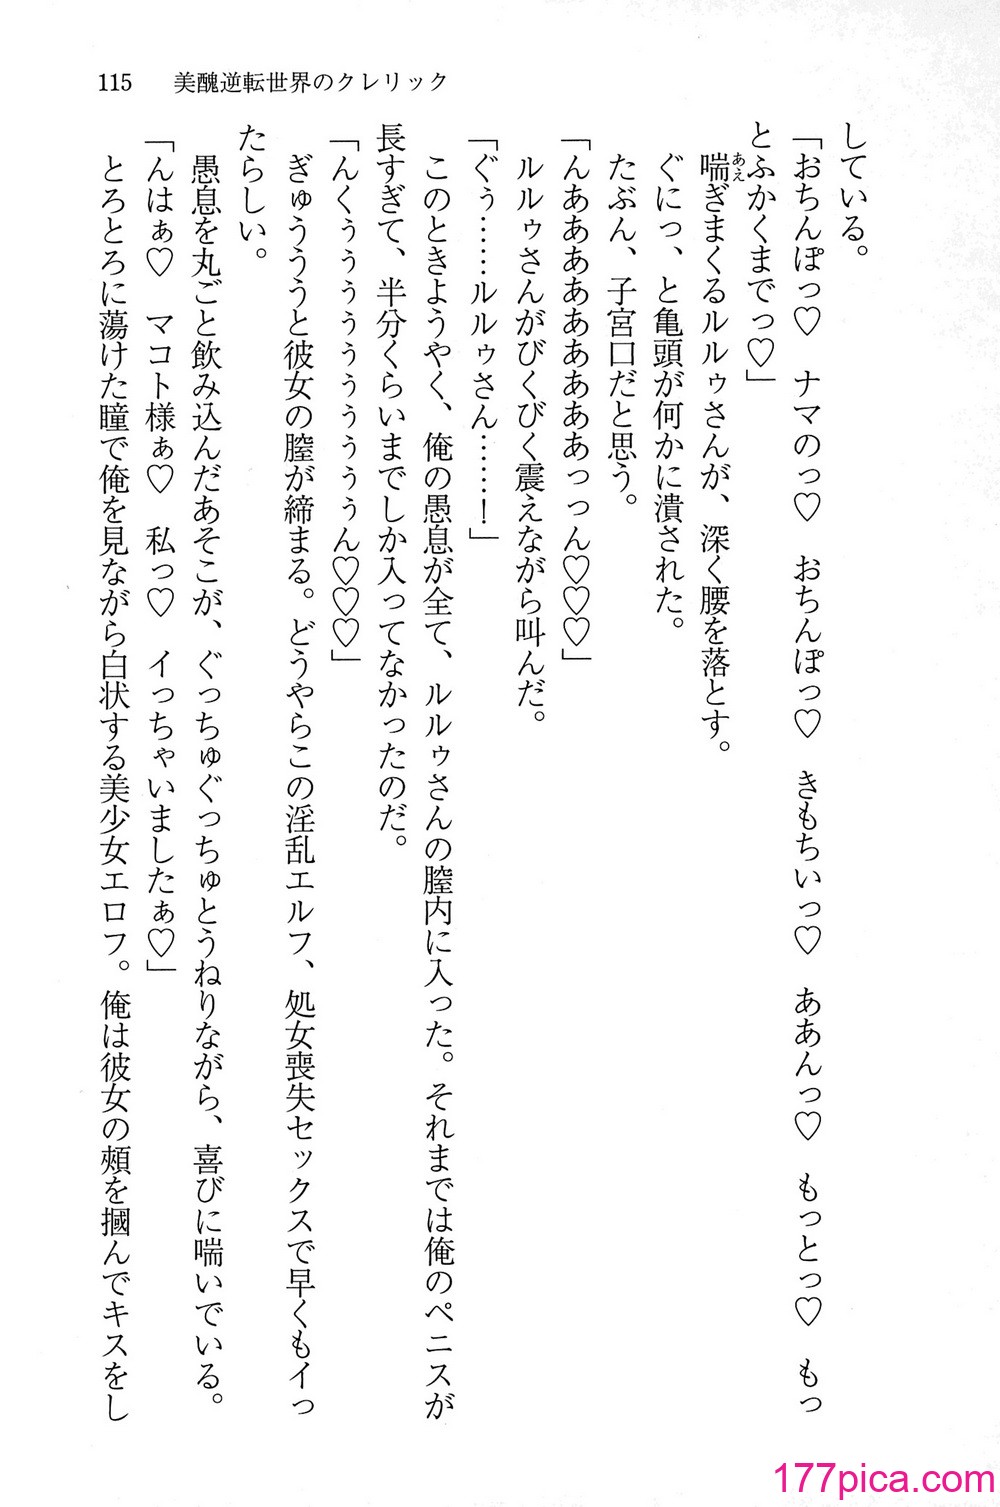 115 美醜逆転世界のクレリック
している。
「おちんぽっ♡ ナマのっ♡ おちんぽっ♡ きもちいっ♡ ああんっ♡ もっとっ♡ もっ
とふかくまでっ♡」
喘ぎまくるルルゥさんが、深く腰を落とす。
あえ
ぐにっ、と亀頭が何かに潰された。
たぶん、子宮口だと思う。
「んああああああああっっん♡♡♡」
ルルゥさんがびくびく震えながら叫んだ。
「ぐぅ……ルルゥさん……！」
このときようやく、俺の愚息が全て、ルルゥさんの膣内に入った。それまでは俺のペニスが
長すぎて、半分くらいまでしか入ってなかったのだ。
「んくぅぅぅぅぅぅぅぅん♡♡♡」
ぎゅうううと彼女の膣が締まる。どうやらこの淫乱エルフ、処女喪失セックスで早くもイっ
たらしい。
愚息を丸ごと飲み込んだあそこが、ぐっちゅぐっちゅとうねりながら、喜びに喘いでいる。
「んはぁ♡ マコト様ぁ♡ 私っ♡ イっちゃいましたぁ♡」
とろとろに蕩けた瞳で俺を見ながら白状する美少女エロフ。俺は彼女の頰を摑んでキスをし
177pica.com